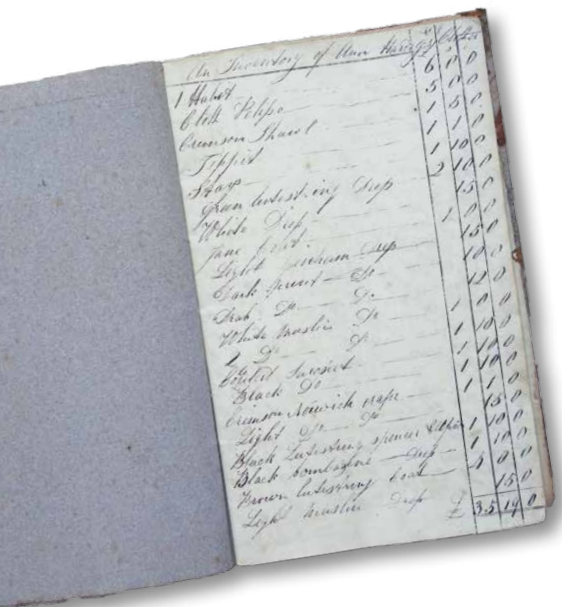 An Inventory of Ann Clothes
1 Habit 6 0 0
Cloth Pelisse 5 0 0
Crimson Shawl 1 5 0
Tippet 1 1 0
Stays 1 10 0
Green Lutestring Dress 2 10 0
White Dress 15 0
Jane Coat 1 0 0
Light Gingham Dress 15 0
Dark Do 10 0
Drab Do Do 12 0
White Muslin Do 1 0 0
1 Do Do 1 10 0
Sarsnet 1 10 0
Black Do 1 10 0
Crimson Norwich crape 1 1 0
Light Do Do 15 0
Black Lutestring spencer 1 10 0
Black bombazine Dress 1 10 0
Brown lutestring coat 4 0 0
Light Muslin Dress 15 0
£ 35 14 0